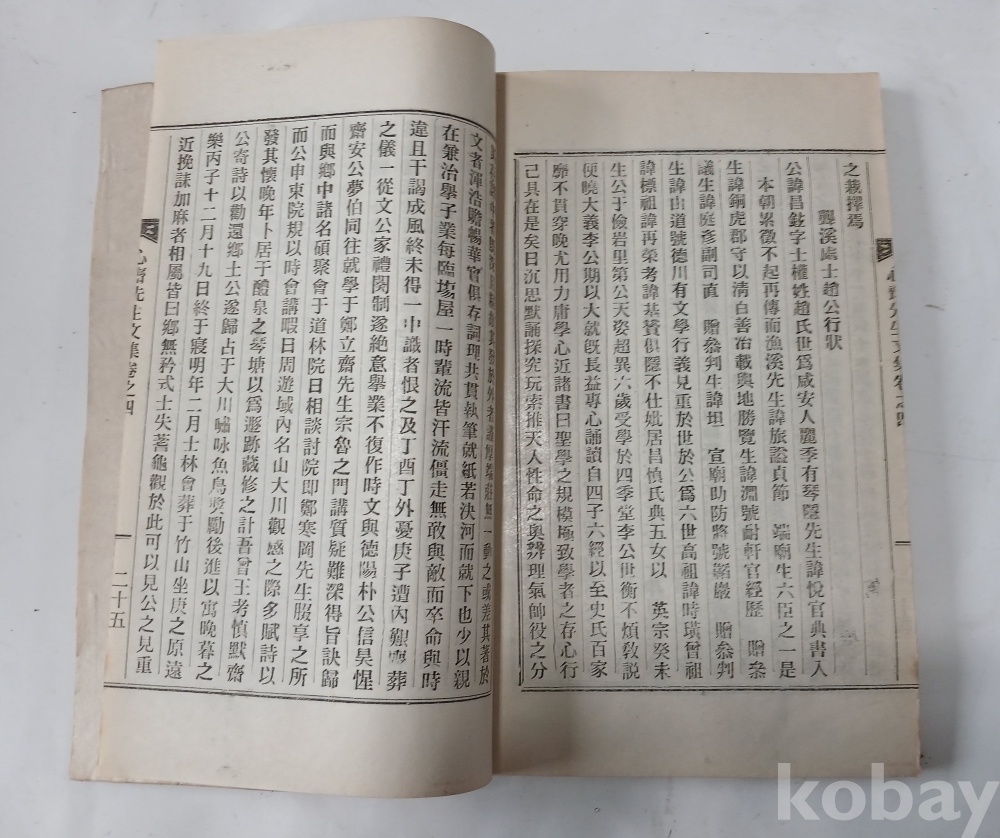 之裁擇焉
龔溪處士趙公行狀
公諱昌鉉字士權姓趙氏世爲咸安人麗季有琴隱先生諱悅官典書入
本朝累徵不起再傳而漁溪先生諱旅諡貞節 端廟生六臣之一是
生諱銅虎郡守以淸白善治載輿地勝覽生諱淵號耐軒官經歷 贈叅
議生諱庭彥副司直 贈叅判生諱坦 宣廟助防將號巖 贈叅判
生諱山道號德川有文學行義見重於世於公爲六世高祖諱時璜曾祖
諱標祖諱再榮考諱基贊俱隱不仕妣居昌愼氏典五女以 英宗癸未
生公于儉岩里第公天姿超異六歲受學於四季堂李公世衡不煩敎說
便曉大義李公期以大就旣長益專心誦讀自四子六經以至史氏百家
靡不貫穿晚尤用力庸學心近諸書曰聖學之規模極致學者之存心行
己具在是矣日沉思默誦探究玩索推天人性命之奧辨理氣帥役之分
心齋先生文集卷之四
一動之或差其著於
文者渾浩贍暢華實俱存詞理共貫執筆就紙若決河而就下也少以親
在兼治擧子業每臨塲屋一時輩流皆汗流僵走無敢與敵而卒命與時
違且干謁成風終未得一中識者恨之及丁酉丁外憂庚子遭內艱喪葬
之儀一從文公家禮闋制遂絶意擧業不復作時文與德陽朴公信昊惺
齋安公夢伯同往就學于鄭立齋先生宗魯之門講質疑難深得旨訣歸
而與鄉中諸名碩聚會于道林院日相談討院卽鄭寒岡先生腏享之所
而公申東院規以時會講暇日周遊域內名山大川觀感之際多賦詩以
發其懷晚年卜居于醴泉之琴塘以爲遯跡藏修之計吾曾王考愼默齋
公寄詩以勸還鄉土公遂歸占于大川嘯咏魚鳥奬勵後進以寓晚暮之
樂丙子十二月十九日終于寢明年二月士林會葬于竹山坐庚之原遠
近挽誄加麻者相屬皆曰鄉無矜式士失蓍龜觀於此可以見公之見重
心齋先生文集卷之四
二十五
kobay